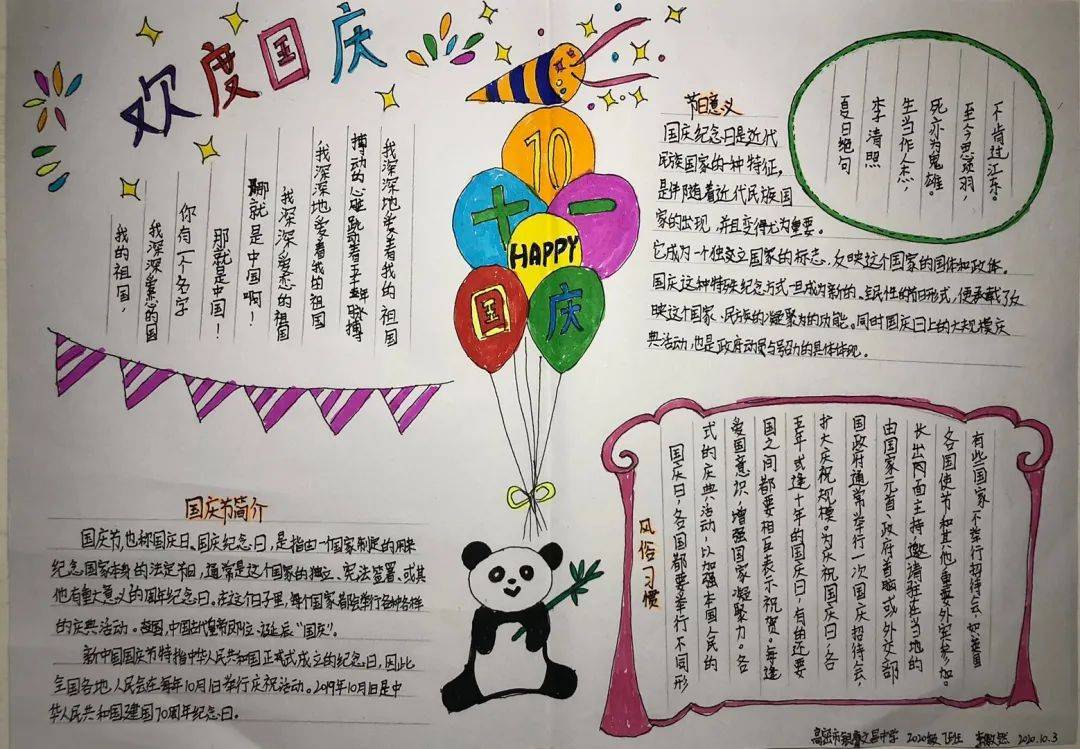 欢度国庆
我深深地爱着我的祖国
搏动的心脏跳动着五千年脉搏
我深深地爱着我的祖国
我深深爱恋的祖国
那就是中国啊！
那就是中国！
你有一个名字
我深深爱恋的国
我的祖国，
10
十一
HAPPY
国庆
节日意义
国庆纪念日是近代
民族国家的一种特征，
是伴随着近代民族国
家的出现，并且变得尤为重要。
它成为一个独立国家的标志，反映这个国家的国体和政体。
国庆这种特殊纪念方式一旦成为新的、全民性的节日形式，便承载了反
映这个国家、民族的凝聚力的功能。同时国庆日上的大规模庆
典活动，也是政府动员与号召力的具体体现。
不肯过江东。
至今思项羽，
死亦为鬼雄。
生当作人杰，
李清照
夏日绝句
国庆节简介
国庆节，也称国庆日、国庆纪念日，是指由一个国家制定的用来
纪念国家本身的法定节日，通常是这个国家的独立、宪法签署、或其
他有重大意义的周年纪念日。在这个日子里，每个国家都会举行各种各样
的庆典活动。我国，中国古代皇帝即位、诞辰“国庆”。
新中国国庆节特指中华人民共和国正式成立的纪念日，因此
全国各地，人民会在每年10月1日举行庆祝活动。2019年10月1日是中
华人民共和国建国70周年纪念日。
风俗习惯
国庆日，各国都要举行不同形
式的庆典活动，以加强本国人民的
爱国意识，增强国家凝聚力。各
国之间都要相互表示祝贺。每逢
五年或逢十年的国庆日，有的还要
扩大庆祝规模。为庆祝国庆日，各
国政府通常举行一次国庆招待会，
由国家元首、政府首脑或外交部
长出面主持，邀请驻在当地的
各国使节和其他重要外宾参加。
有些国家不举行招待会，如美国
高密市 文昌中学 2020级 班 2020.10.3